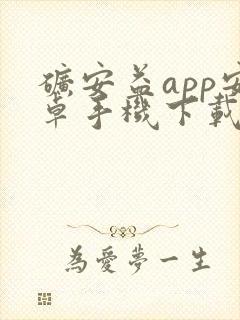 礦安益app安
卓手機下載
為愛夢一生